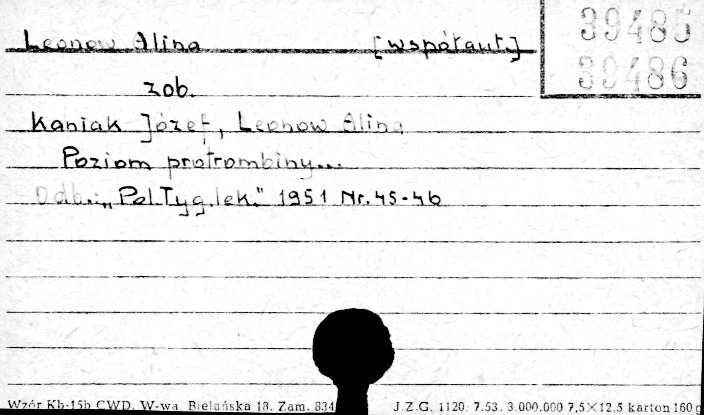 39485
39486
Leonow Alina [współaut.]
zob.
Kaniak Józef, Leonow Alina
Poziom protrombiny...
Odb.: "Pol.Tyg.lek." 1951 Nr. 45-46
Wzór Kb-15b CWD. W-wa Bielańska 18. Zam. 834 J.Z.G. 1120. 7.53. 3.000.000 7,5×12,5 karton 160 g